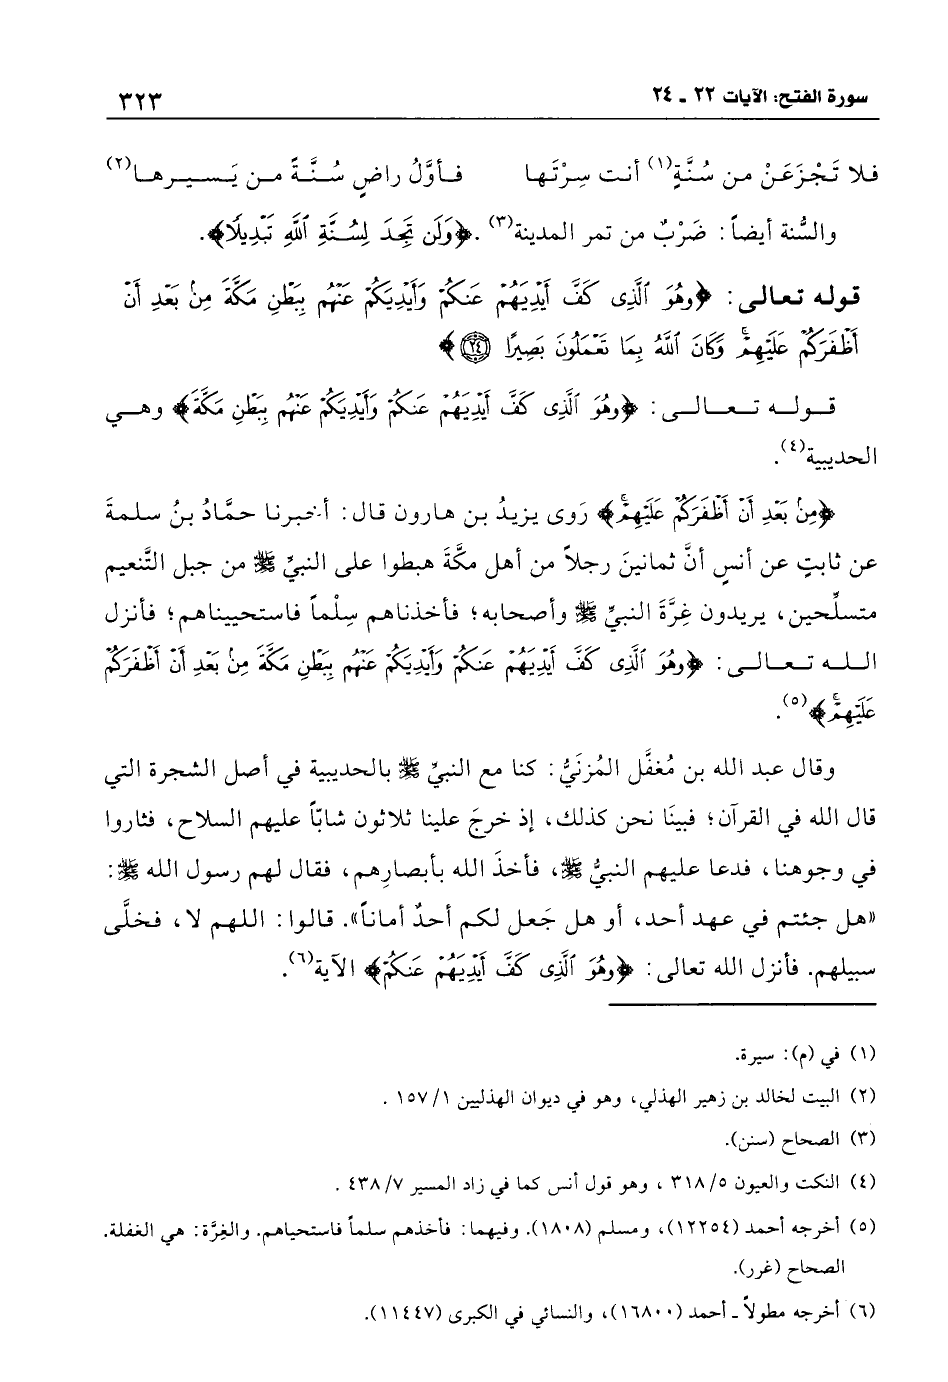 سورة الفتح: الآيات ٢٢ ـ ٢٤ ٣٢٣
فلا تَجْزَعَنْ من سُنَّةٍ(١) أنت سِرْتَها فأوَّلُ راضٍ سُنَّةً من يَسيرها(٢)
والسُّنة أيضاً: ضَرْبٌ من تمر المدينة(٣). ﴿وَلَن تَجِدَ لِسُنَّةِ ٱللَّهِ تَبْدِيلًا﴾.
قوله تعالى: ﴿وَهُوَ ٱلَّذِى كَفَّ أَيْدِيَهُمْ عَنكُمْ وَأَيْدِيَكُمْ عَنْهُم بِبَطْنِ مَكَّةَ مِنۢ بَعْدِ أَنْ
أَظْفَرَكُمْ عَلَيْهِمْ ۚ وَكَانَ ٱللَّهُ بِمَا تَعْمَلُونَ بَصِيرًا ٢٤﴾
قوله تعالى: ﴿وَهُوَ ٱلَّذِى كَفَّ أَيْدِيَهُمْ عَنكُمْ وَأَيْدِيَكُمْ عَنْهُم بِبَطْنِ مَكَّةَ﴾ وهي
الحديبية(٤).
﴿مِنۢ بَعْدِ أَنْ أَظْفَرَكُمْ عَلَيْهِمْ ۚ﴾ رَوى يزيدُ بن هارون قال: أخبرنا حمَّادُ بنُ سلمةَ
عن ثابتٍ عن أنسٍ أنَّ ثمانينَ رجلاً من أهل مكَّةَ هبطوا على النبيِّ ﷺ من جبل التَّنعيم
متسلِّحين، يريدون غِرَّةَ النبيِّ ﷺ وأصحابه؛ فأخذناهم سِلْماً فاستحييناهم؛ فأنزل
الله تعالى: ﴿وَهُوَ ٱلَّذِى كَفَّ أَيْدِيَهُمْ عَنكُمْ وَأَيْدِيَكُمْ عَنْهُم بِبَطْنِ مَكَّةَ مِنۢ بَعْدِ أَنْ أَظْفَرَكُمْ
عَلَيْهِمْ ۚ﴾(٥).
وقال عبد الله بن مُغفَّل المُزنَيُّ: كنا مع النبيِّ ﷺ بالحديبية في أصل الشجرة التي
قال الله في القرآن؛ فبينَا نحن كذلك، إذ خرجَ علينا ثلاثون شابّاً عليهم السلاح، فثاروا
في وجوهنا، فدعا عليهم النبيُّ ﷺ، فأخذَ الله بأبصارِهم، فقال لهم رسول الله ﷺ:
«هل جئتم في عهد أحد، أو هل جَعل لكم أحدٌ أماناً». قالوا: اللهم لا، فخلَّى
سبيلهم. فأنزل الله تعالى: ﴿وَهُوَ ٱلَّذِى كَفَّ أَيْدِيَهُمْ عَنكُمْ﴾ الآية(٦).
(١) في (م): سيرة.
(٢) البيت لخالد بن زهير الهذلي، وهو في ديوان الهذليين ١/ ١٥٧ .
(٣) الصحاح (سنن).
(٤) النكت والعيون ٥/ ٣١٨ ، وهو قول أنس كما في زاد المسير ٧/ ٤٣٨ .
(٥) أخرجه أحمد (١٢٢٥٤)، ومسلم (١٨٠٨). وفيهما: فأخذهم سلماً فاستحياهم. والغِرَّة: هي الغفلة.
الصحاح (غرر).
(٦) أخرجه مطولاً ـ أحمد (١٦٨٠٠)، والنسائي في الكبرى (١١٤٤٧).